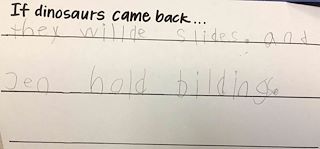 If dinosaurs came back...
they willde slides. and
Jen hold bildings.